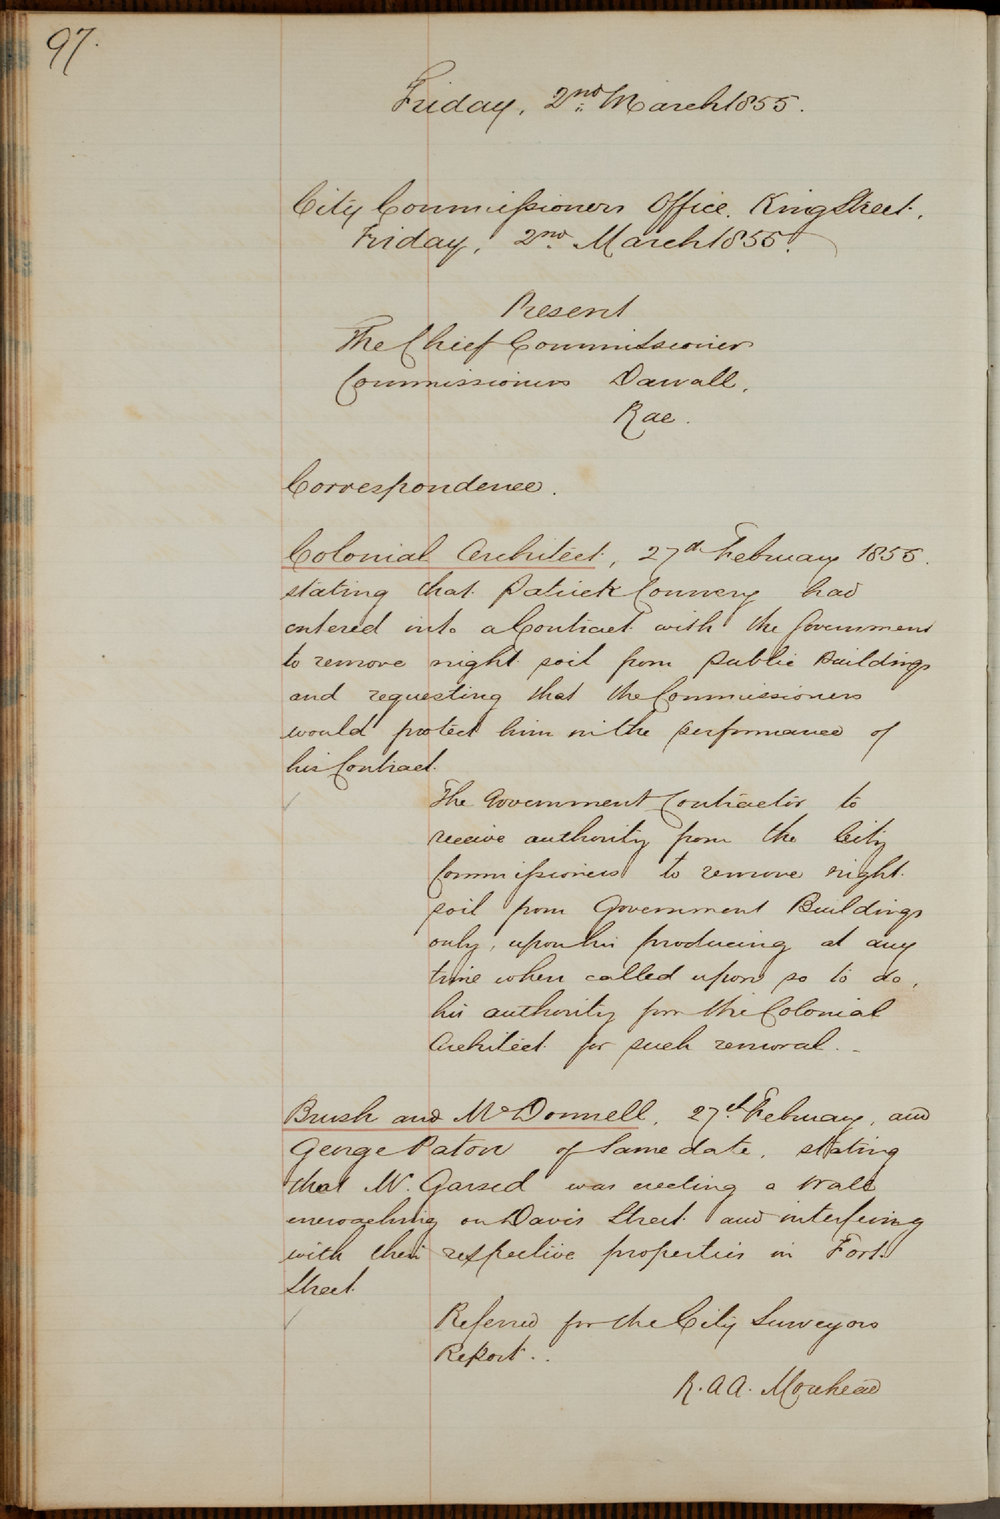 97.
Friday, 2nd March 1855.
City Commissioners Office. King Street.
Friday, 2nd March 1855.
Present
The Chief Commissioner
Commissioners Darvall,
Rae.
Correspondence.
Colonial Architect, 27th February 1855.
stating that Patrick Conwery had
entered into a Contract with the Government
to remove night soil from Public Buildings
and requesting that the Commissioners
would protect him in the performance of
his Contract.
The Government Contractor to
receive authority from the City
Commissioners to remove night
soil from Government Buildings
only, upon his producing at any
time when called upon so to do,
his authority from the Colonial
Architect for such removal.
Brush and McDonnell, 27th February, and
George Paton of same date, stating
that Mr. Garsed was erecting a Wall
encroaching on Davis Street and interfering
with their respective properties in Fort
Street
Referred for the City Surveyors
Report.
R. A A. Morehead